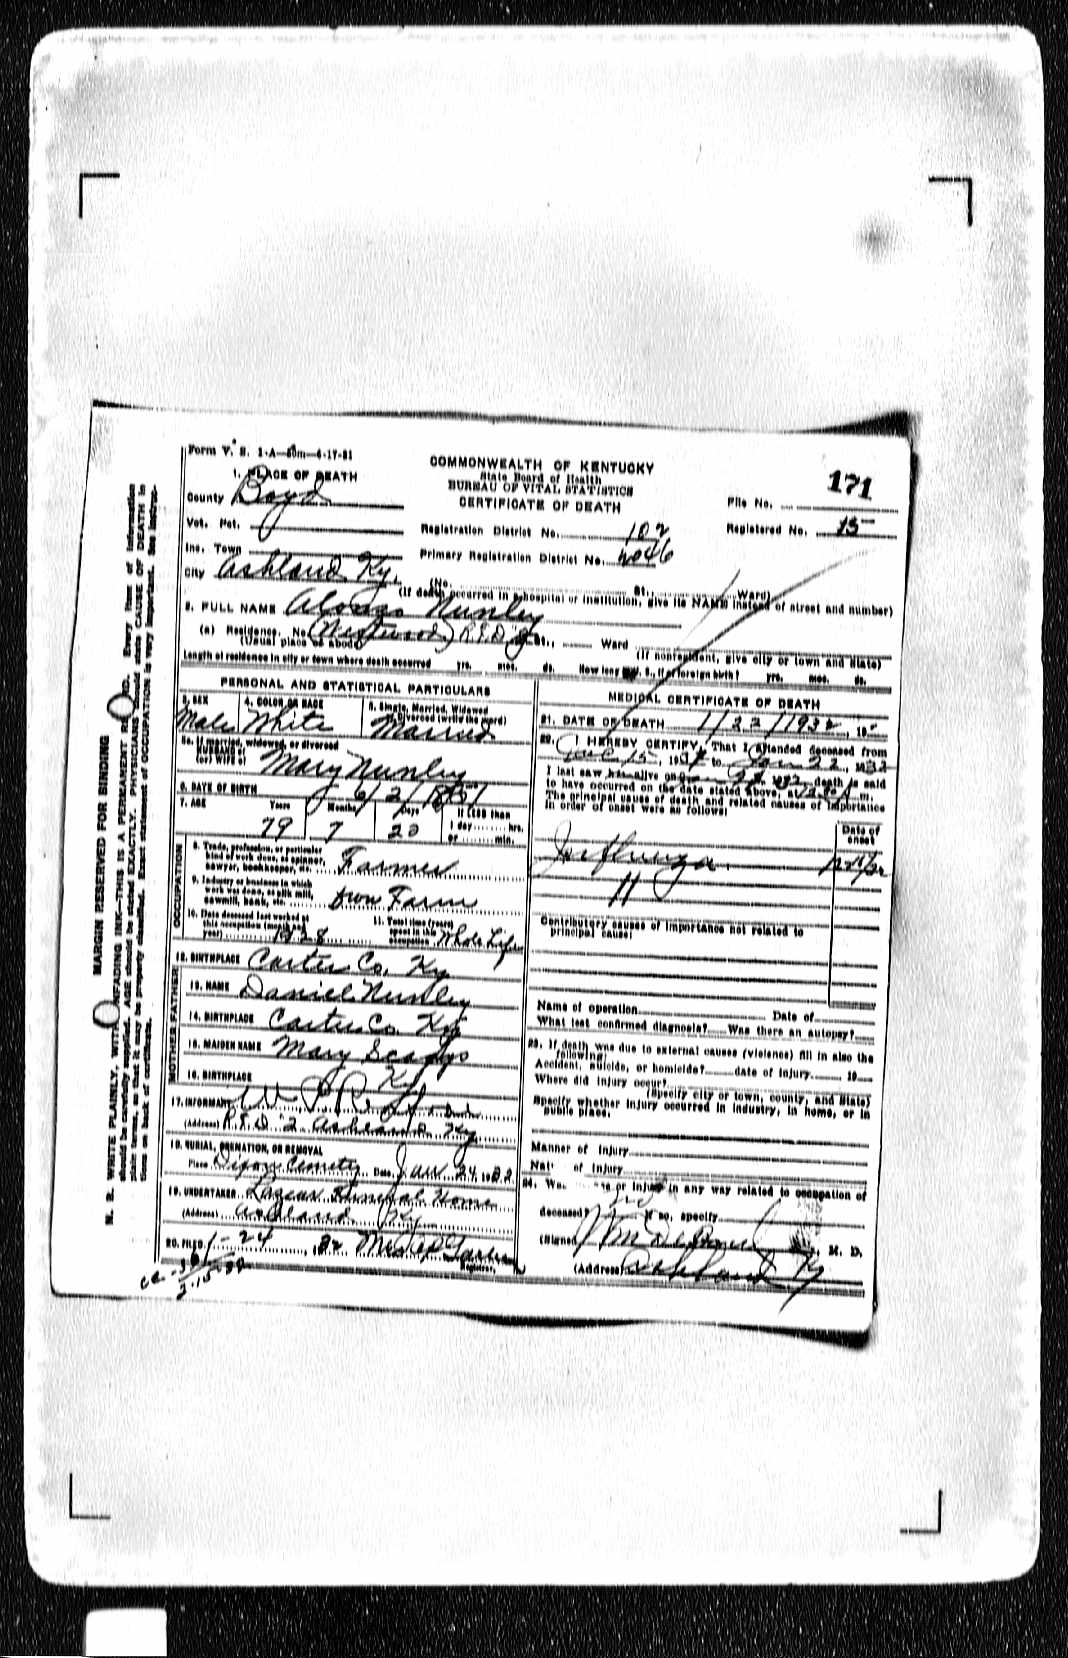 Form V. S. 1-A—50m—4-17-31
COMMONWEALTH OF KENTUCKY
State Board of Health
BUREAU OF VITAL STATISTICS
CERTIFICATE OF DEATH
171
File No.
Registered No. 15
1. PLACE OF DEATH
County Boyd
Vot. Pct.
Registration District No. 102
Inc. Town
Primary Registration District No. 2046
City Ashland Ky. (No. St., Ward)
(If death occurred in a hospital or institution, give its NAME instead of street and number)
2. FULL NAME Alonzo Nunley
(a) Residence. No. (Westwood) R.F.D. 2 St., Ward
(Usual place of abode) (If nonresident, give city or town and State)
Length of residence in city or town where death occurred yrs. mos. ds. How long in U. S., if of foreign birth? yrs. mos. ds.
PERSONAL AND STATISTICAL PARTICULARS
3. SEX Male
4. COLOR OR RACE White
5. Single, Married, Widowed or Divorced (write the word) Married
5a. If married, widowed, or divorced
HUSBAND of
(or) WIFE of Mary Nunley
6. DATE OF BIRTH 6/2/1851
7. AGE Years 79 Months 7 Days 20 If LESS than
1 day hrs.
or min.
OCCUPATION
8. Trade, profession, or particular
kind of work done, as spinner,
sawyer, bookkeeper, etc. Farmer
9. Industry or business in which
work was done, as silk mill,
sawmill, bank, etc. Own Farm
10. Date deceased last worked at
this occupation (month and
year) 1928
11. Total time (years)
spent in this
occupation Whole Life
12. BIRTHPLACE Carter Co. Ky
FATHER
13. NAME Daniel Nunley
14. BIRTHPLACE Carter Co. Ky
MOTHER
15. MAIDEN NAME Mary
16. BIRTHPLACE Ky
17. INFORMANT
(Address) R.F.D. 2 Ashland Ky
18. BURIAL, CREMATION, OR REMOVAL
Place Dixon Cemetry Date Jan 24, 1932
19. UNDERTAKER Lazear Funeral Home
(Address) Ashland Ky
20. FILED 1-24, 32
Registrar.
MEDICAL CERTIFICATE OF DEATH
21. DATE OF DEATH 1/22/1932, 19
22. I HEREBY CERTIFY, That I attended deceased from
15, 193 to Jan 22, 1932
I last saw him alive on Jan 1932 death is said
to have occurred on the date stated above, at m.
The principal cause of death and related causes of importance
in order of onset were as follows:
Date of
onset
Influenza
Contributory causes of importance not related to
principal cause:
Name of operation Date of
What test confirmed diagnosis? Was there an autopsy?
23. If death was due to external causes (violence) fill in also the
following:
Accident, suicide, or homicide? date of injury 19
Where did injury occur?
(Specify city or town, county, and State)
Specify whether injury occurred in industry, in home, or in
public place.
Manner of injury
Nat of injury
24. Was or injury in any way related to occupation of
deceased? If so, specify
(Signed) M. D.
(Address) Ashland Ky
MARGIN RESERVED FOR BINDING
N. B. WRITE PLAINLY, WITH UNFADING INK—THIS IS A PERMANENT RECORD. Every item of information
should be carefully supplied. AGE should be stated EXACTLY. PHYSICIANS should state CAUSE OF DEATH in
plain terms, so that it may be properly classified. Exact statement of OCCUPATION is very important. See instruc-
tions on back of certificate.